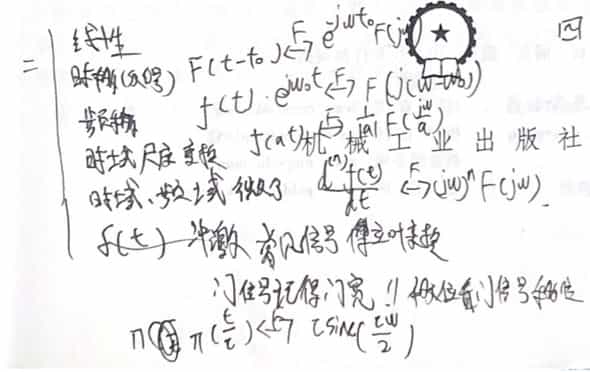 二 线性
时移(加号) F(t-t₀) ⟷F e^{-jωt₀} F(jω)
频移 f(t)·e^{jω₀t} ⟷F F(j(ω-ω₀))
时域尺度变换 f(at) ⟷F 1/|a| F(jω/a)
机械工业出版社
时域、频域微分 d^{(n)}f(t)/dt ⟷F (jω)ⁿ F(jω)
f(t) 冲激 常见信号 傅立叶变换
门信号记得门宽!! 门信号
π(t/τ) ⟷F τsinc(τω/2)